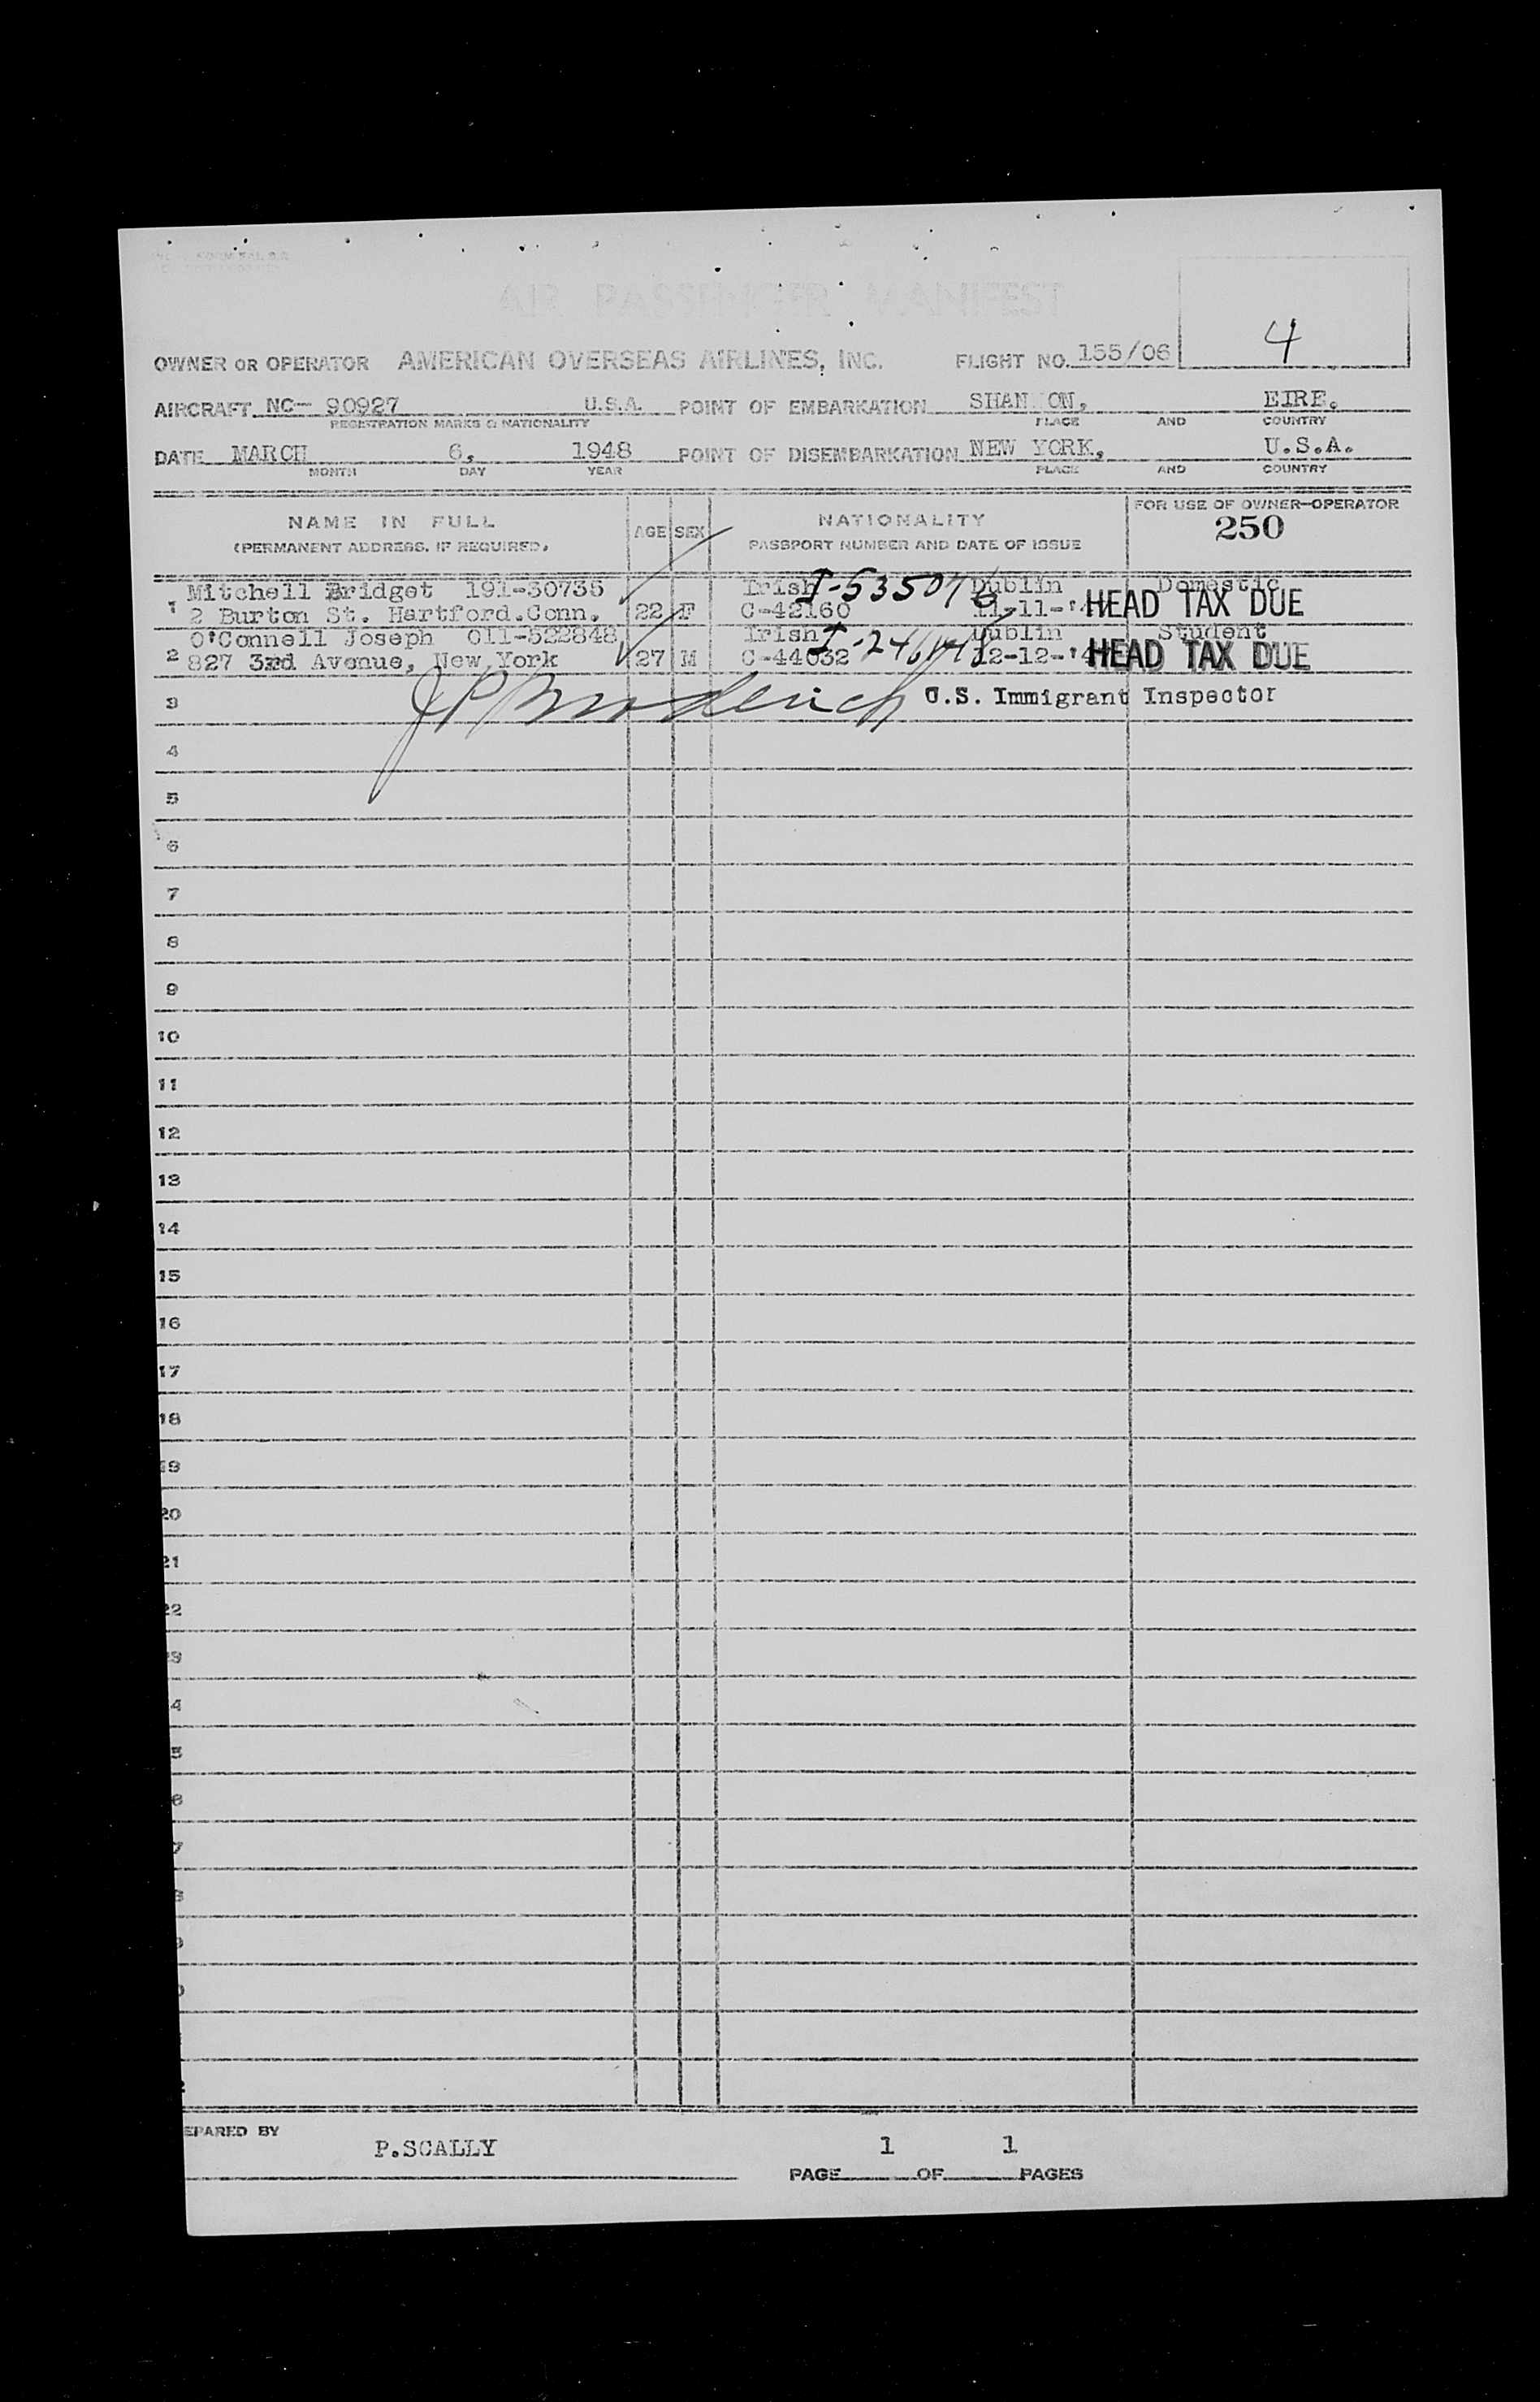 AIR PASSENGER MANIFEST
4
OWNER OR OPERATOR AMERICAN OVERSEAS AIRLINES, INC. FLIGHT NO. 155/06
AIRCRAFT NC- 90927 U.S.A. POINT OF EMBARKATION SHAN ON, EIRE.
REGISTRATION MARKS & NATIONALITY PLACE AND COUNTRY
DATE MARCH 6, 1948 POINT OF DISEMBARKATION NEW YORK, U.S.A.
MONTH DAY YEAR PLACE AND COUNTRY
NAME IN FULL AGE SEX NATIONALITY FOR USE OF OWNER-OPERATOR
(PERMANENT ADDRESS, IF REQUIRED) PASSPORT NUMBER AND DATE OF ISSUE 250
Mitchell Bridget 191-30735 Irish I-535076 Dublin Domestic
1 2 Burton St. Hartford.Conn. 22 F C-42160 11-11-'4 HEAD TAX DUE
O'Connell Joseph 011-522848 Irish Dublin Student
2 827 3rd Avenue, New York 27 M C-44032 12-12-'4 HEAD TAX DUE
3 U.S. Immigrant Inspector
4
5
6
7
8
9
10
11
12
13
14
15
16
17
18
19
20
21
22
23
4
5
6
7
8
9
0
2
EPARED BY P.SCALLY 1 1
PAGE OF PAGES